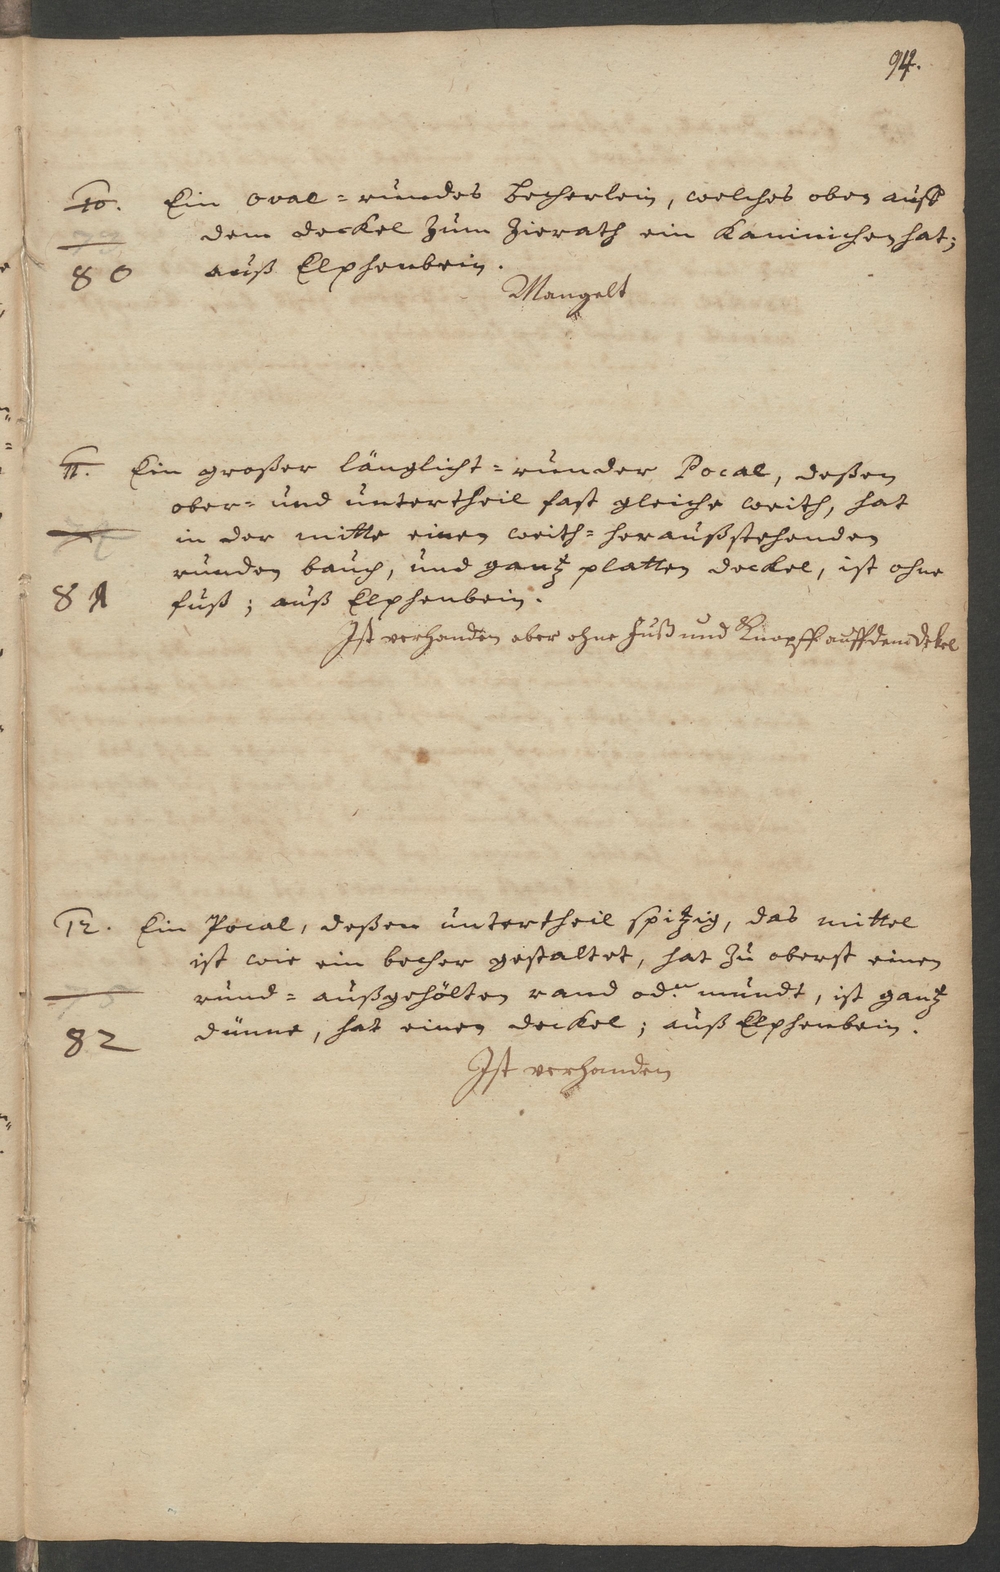 94.
10. Ein oval=rundes Becherlein, welches oben auff
dem deckel zum Zierath ein Kaninichen hat;
80 auß Elphenbein.
Mangelt
11. Ein großer länglicht=runder Pocal, deßen
ober= und untertheil fast gleiche weith, hat
in der mitte einen weith=heraußstehenden
runden bauch, und gantz platten deckel, ist ohne
81 fuß; auß Elphenbein.
Ist verhanden aber ohne Fuß und Knopff auff dem dekel
12. Ein Pocal, deßen untertheil spitzig, das mittel
ist wie ein becher gestaltet, hat zu oberst einen
rund=außgehölten rand od.er mundt, ist gantz
82 dünne, hat einen deckel; auß Elphenbein.
Ist verhanden